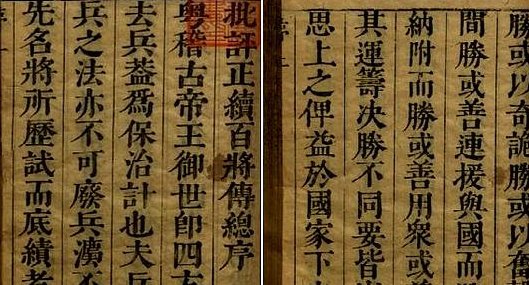 批評正續百將傳總序
粵稽古帝王御世即四
去兵葢爲保治計也夫兵
兵之法亦不可廢兵
先名將所歷試而底績者
勝或以奇詭勝或以奮
間勝或善連援與國而
納附而勝或善用衆或
其運籌决勝不同要皆
思上之俾益於國家下